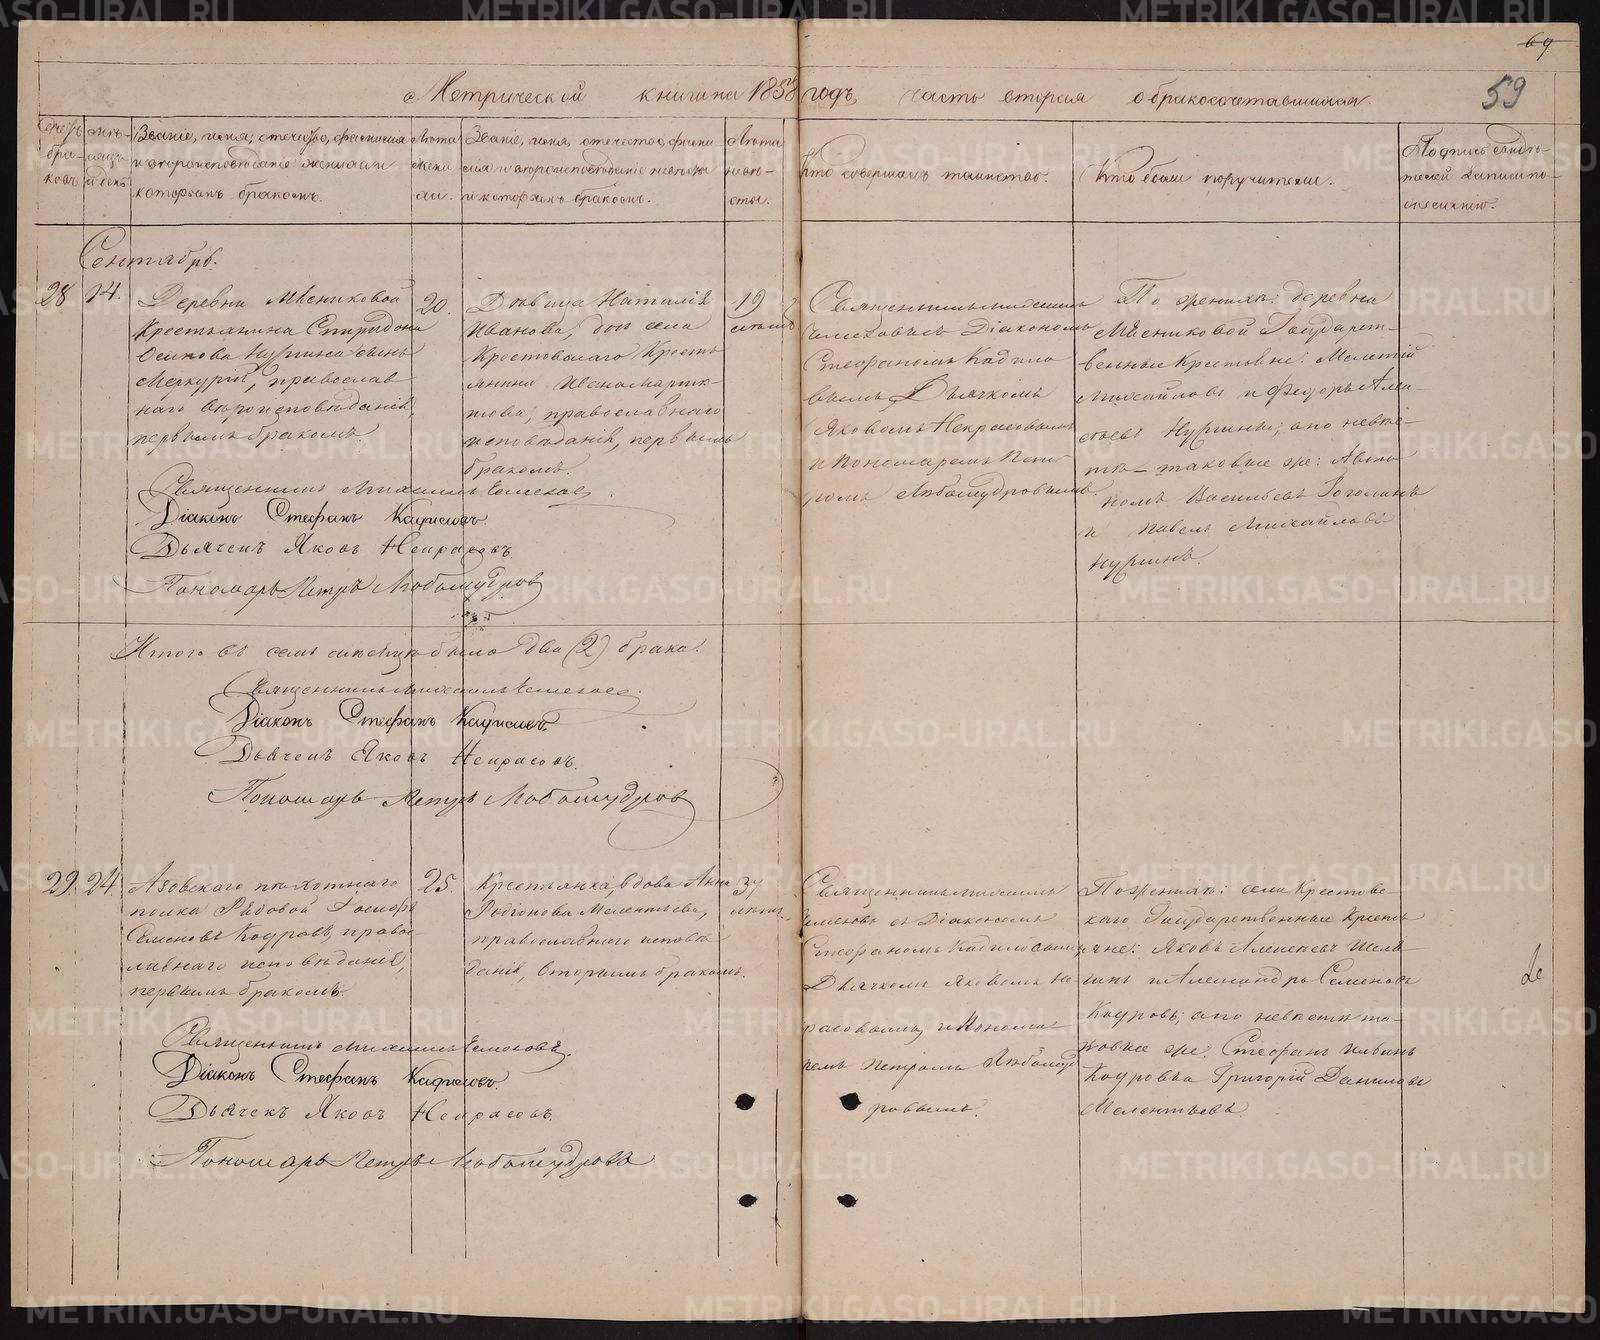 69.
59
Метрической книги на 1858 годъ, часть вторая о бракосочетавшихся.
Счетъ браковъ
Мѣсяцъ и день
Званіе, имя, отечество, фамилія
и вѣроисповѣданіе жениха и
которымъ бракомъ.
Лѣта
жени
ха.
Званіе, имя, отечество, фами-
лія и вѣроисповѣданіе невѣсты
и которымъ бракомъ.
Лѣта
невѣ-
сты.
Кто совершалъ таинство.
Кто были поручители.
Подпись свидѣ-
телей записи по
желанію.
Сентябрь.
28
14.
Деревни Мѣсниковой
Крестьянина Спиридона
Осипова сынъ
Меркурій, православ
наго вѣроисповѣданія,
первымъ бракомъ.
20.
Дѣвица Наталія
Иванова, дочь села
Крестовскаго Кресть
янина Ивана Март
православнаго
исповѣданія, первымъ
бракомъ.
19
лѣтъ
Священникъ Михаилъ
Діакономъ
Стефаномъ Кадило
вымъ, Дьячкомъ
Яковомъ Некрасовымъ
и Пономаремъ Пет
ромъ Любомудровымъ.
По женихѣ: деревни
Мѣсниковой Государст-
венные Крестьяне: Мелетій
Михайловъ и Федоръ Але
а по невѣс-
тѣ таковые же:
Васильевъ
и Павелъ Михайловъ
Священникъ Михаилъ
Діаконъ Стефанъ Кадиловъ.
Дьячекъ Яковъ Некрасовъ.
Пономарь Петръ Любомудровъ
Итого въ семъ мѣсяцѣ было два (2) брака.
Священникъ Михаилъ
Діаконъ Стефанъ Кадиловъ.
Дьячекъ Яковъ Некрасовъ.
Пономарь Петръ Любомудровъ
29.
24.
Азовскаго пѣхотнаго
полка Рядовой
Семеновъ Кодровъ, право
славнаго исповѣданія,
первымъ бракомъ.
25.
Крестьянка, вдова Анна
Родіонова Мелентьева,
православнаго исповѣ
данія, вторымъ бракомъ.
37
лѣтъ
Священникъ Михаилъ
съ Діакономъ
Стефаномъ Кадиловымъ,
Дьячкомъ Яковомъ Нек
расовымъ, и Понома
ремъ Петромъ Любомуд
ровымъ.
По женихѣ: села Крестовс
каго Государственные Кресть
яне: Яковъ Алексѣевъ
и Александръ Семеновъ
Кодровъ; а по невѣстѣ та-
ковые же: Стефанъ
Кодровъ и Григорій Даниловъ
Мелентьевъ.
Священникъ Михаилъ
Діаконъ Стефанъ Кадиловъ.
Дьячекъ Яковъ Некрасовъ.
Пономарь Петръ Любомудровъ
METRIKI.GASO-URAL.RU